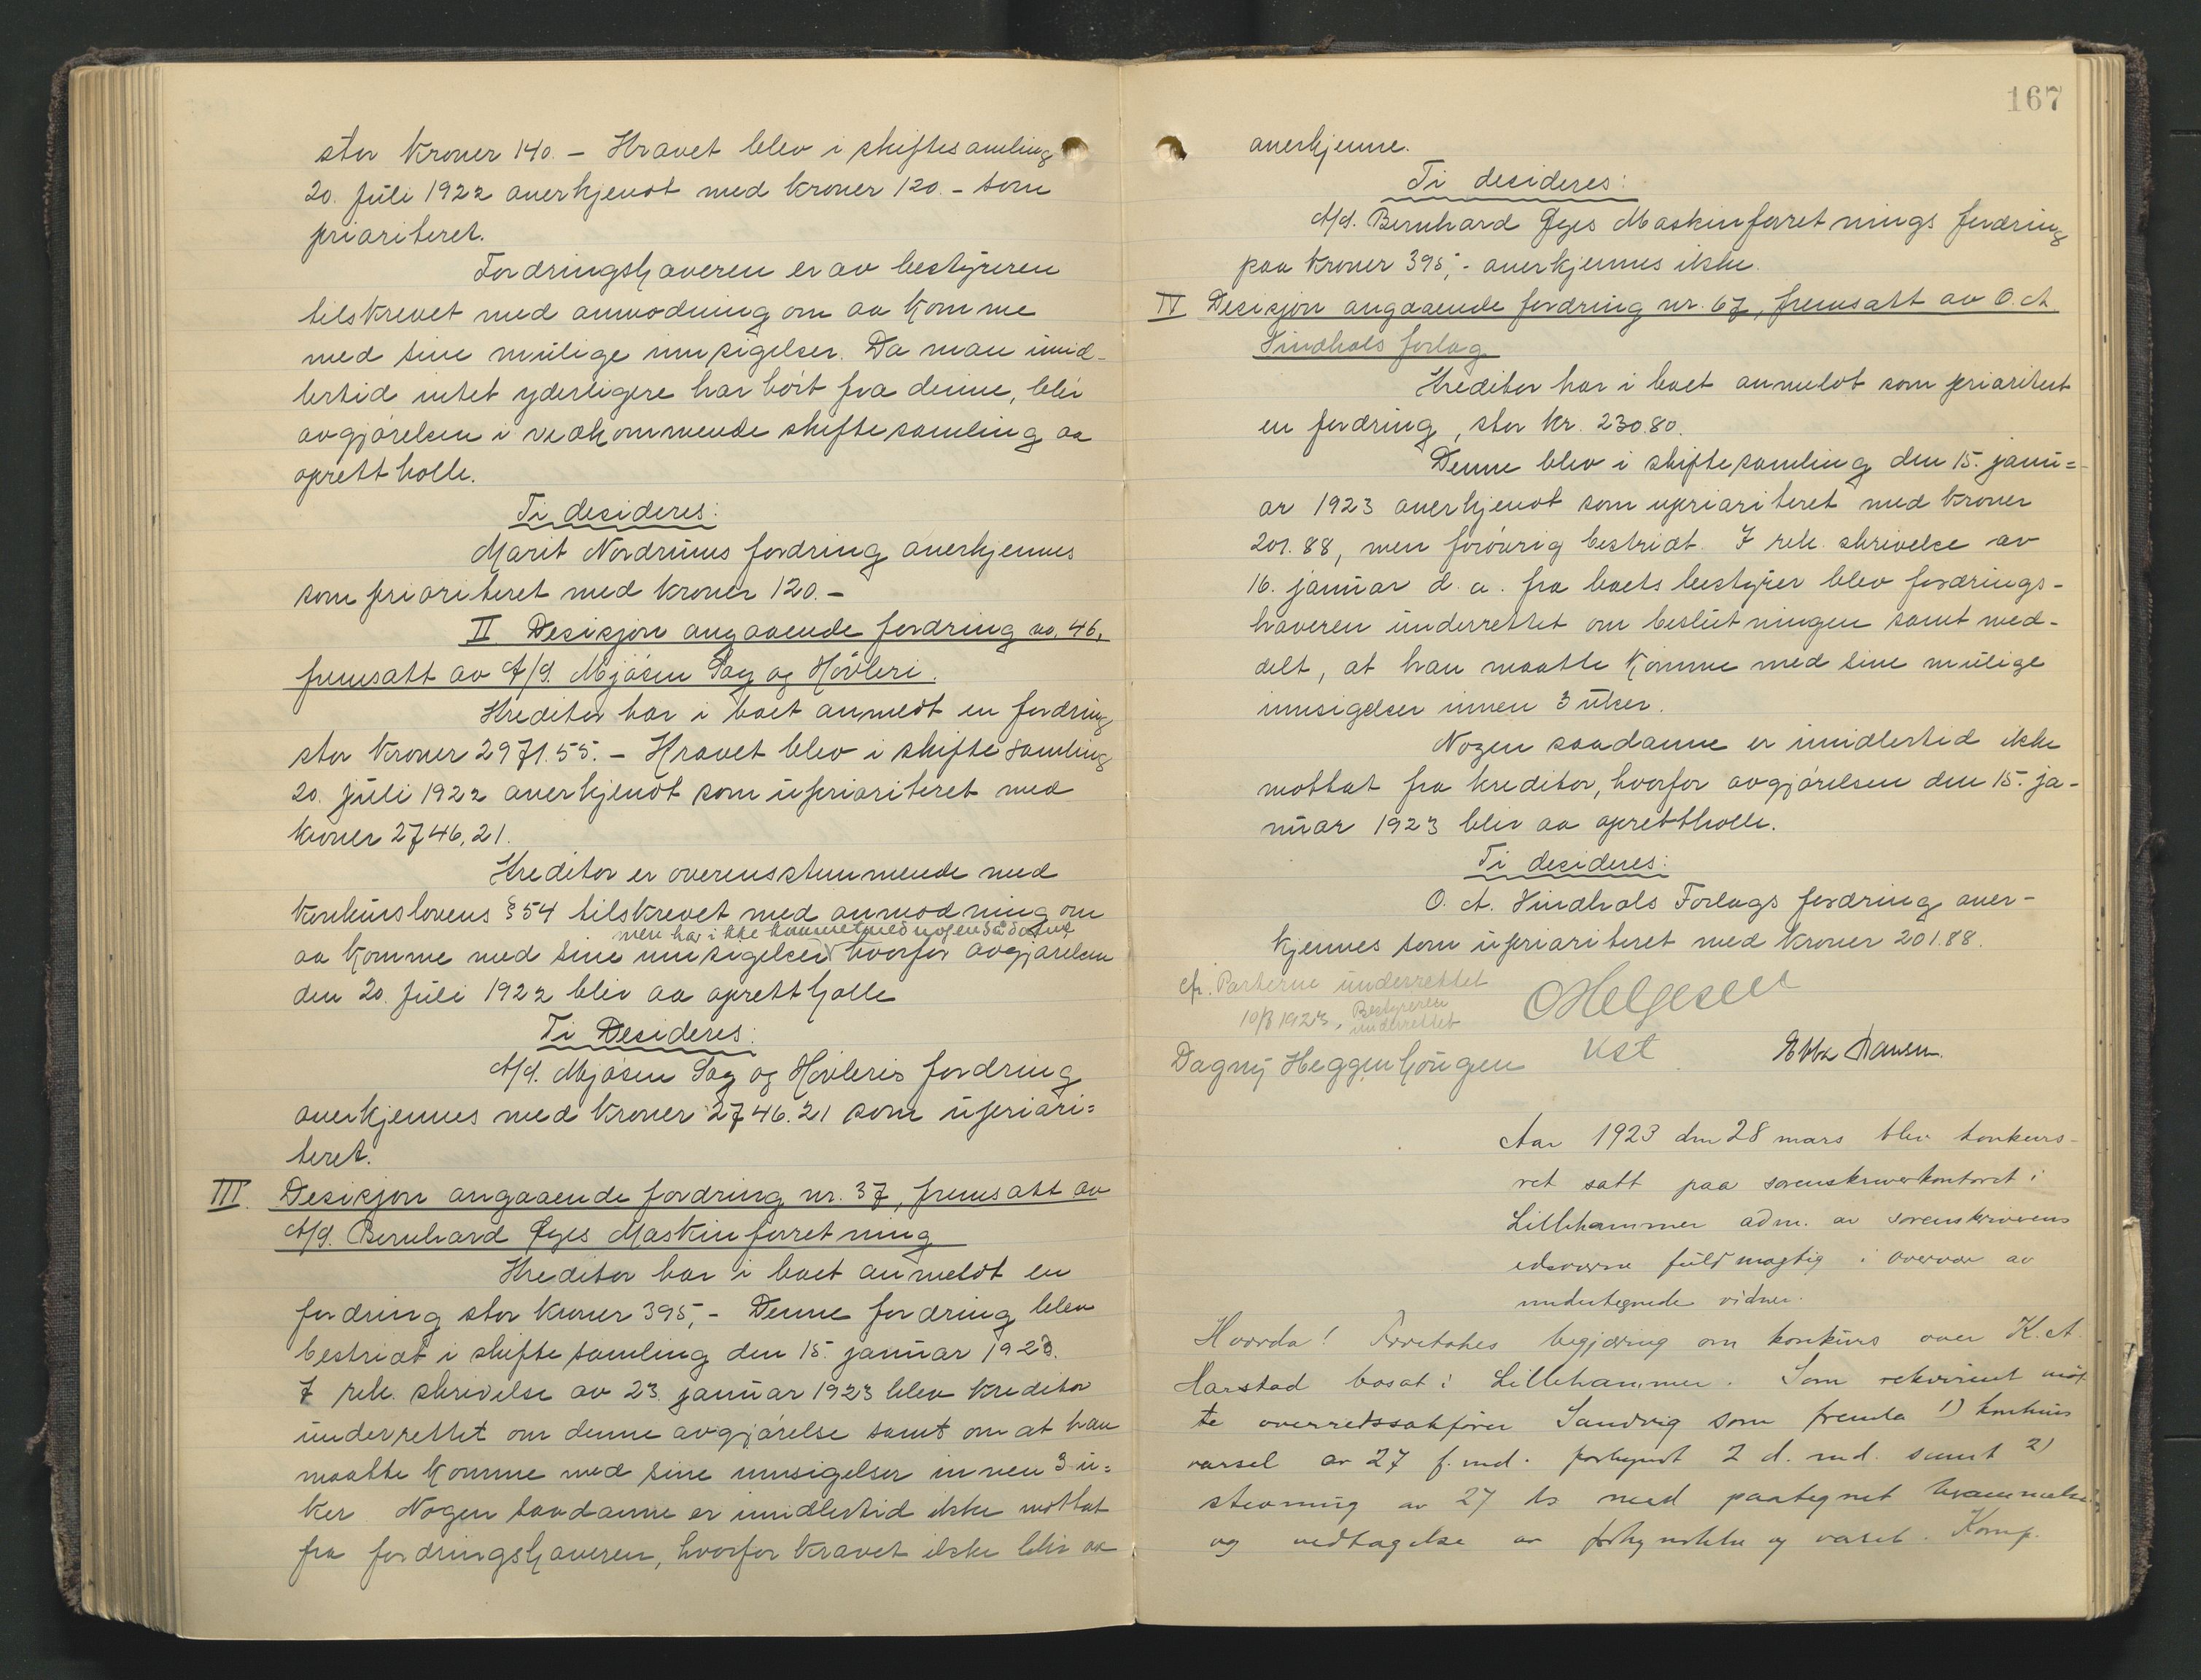 stor kroner 140.- Kravet blev i skiftesamling
20. juli 1922 anerkjendt med kroner 120.- som
prioriteret.
Fordringshaveren er av bestyreren
tilskrevet med anmodning om aa komme
med sine mulige innsigelser. Da man imid-
lertid intet yderligere har hört fra denne, blir
avgjörelsen i vedkommende skiftesamling aa
oprettholle.
Ti desideres:
Marit Nordrums fordring anerkjennes
som prioriteret med kroner 120.-
II Desisjon angaaende fordring no. 46,
fremsatt av A/S. Mjösen Sag og Hövleri.
Kreditor har i boet anmeldt en fordring
stor kroner 2971.55.- Kravet blev i skiftesamling
20. juli 1922 anerkjendt som uprioriteret med
kroner 2746,21.
Kreditor er overensstemmende med
konkurslovens § 54 tilskrevet med anmodning om
men har ikke kommet med nogen sådanne
aa komme med sine innsigelser hvorfor avgjörelsen
den 20. juli 1922 blir aa opretthholle
Ti Desideres:
A/S. Mjösen Sag og Hövleris fordring
anerkjennes med kroner 2746.21 som upriori=
teret.
III. Desisjon angaaende fordring nr. 37, fremsatt av
A/S. Bernhard Øyes Maskinforretning
Kreditor har i boet anmeldt en
fordring stor kroner 395,- Denne fordring blev
bestridt i skiftesamling den 15. januar 1923.
I rek. skrivelse av 23. januar 1923 blev kreditor
underrettet om denne avgjörelse samt om at han
maatte komme med sine innsigelser innen 3 u=
ker. Nogen saadanne er imidlertid ikke mottat
fra fordringshaveren, hvorfor kravet ikke blir aa
167
anerkjenne.
Ti desideres:
A/S. Bernhard Øyes Maskinforretnings fordring
paa kroner 395,- anerkjennes ikke.
IV Desisjon angaaende fordring nr. 67, fremsatt av O. A.
Vindhols forlag
Kreditor har i boet anmeldt som prioritert
en fordring, stor kr. 230.80.
Denne blev i skiftesamling den 15. janu=
ar 1923 anerkjendt som uprioriteret med kroner
201.88, men forövrig bestridt. I rek. skrivelse av
16. januar d. a. fra boets bestyrer blev fordrings-
haveren underrettet om beslutningen samt med-
delt, at han maatte komme med sine mulige
innsigelser innen 3 uker.
Nogen saadanne er imidlertid ikke
mottat fra kreditor, hvorfor avgjörelsen den 15. ja-
nuar 1923 blir aa oprettholle.
Ti desideres:
O. A. Vindhols Forlags fordring aner-
kjennes som uprioriteret med kroner 201.88.
Parterne underrettet
10/3 1923, Bestyreren
underrettet
OHelgesen
kst
Dagny Heggenhougen
Ebba Hansen.
Aar 1923 den 28 mars blev konkurs-
ret satt paa sorenskriverkontoret i
Lillehammer adm. av sorenskriverens
edsvorne fuldmægtig i overvær av
undertegnede vidner.
Hvorda! Foretokes begjæring om konkurs over K. A.
Harstad bosat i Lillehammer. Som rekvirent möt
te overretssakfører Sandvig som fremla 1) konkurs
varsel av 27 f. md. forkyndt 2 d. md. samt 2)
stevning av 27 ds med paategnet berammelse
og vedtagelse av forkyndelse og varsel. Komp.